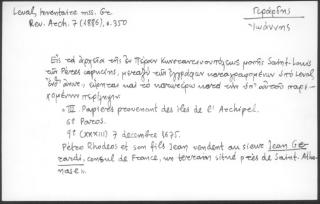 Laval, Inventaire mss. Grz
Rev. Arch. 7 (1886), σ. 350
Γεράρδης
Ἰωάννης
Εἰς τὰ ἀρχεῖα τῆς ἐν Πέραν Κωνσταντινουπόλεως μονῆς Saint-Louis
τῶν Pères capucins, μεταξὺ τῶν ἐγγράφων καταγραφομένων ὑπὸ Laval,
ἔνθ' ἄνωτ., εὕρηται καὶ τὸ κατωτέρω κατὰ τὴν ὑπ' αὐτοῦ παρε-
χομένην περίληψιν.
« III. Papiers provenant des îles de l'Archipel.
6° Paros.
9° (XXXIII) 7 décembre 1675.
Pétro Rhodeos et son fils Jean vendent au sieur Jean Ge
rardi, consul de France, un terrain situé près de Saint-Atha
nase ».